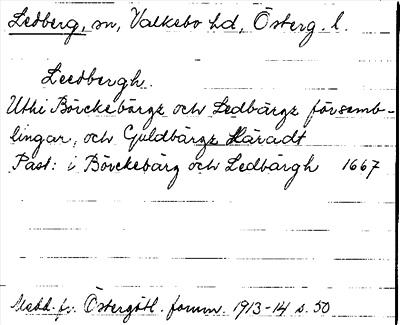 Ledberg, sn, Valkebo hd, Österg. l.
Leedbergh.
Uthi Börckebärgz och Ledbärgz församb-
lingar, och Guldbärgz Häradt
Past: i Börckebärg och Ledbärgh 1667
Medd. fr. Östergötl. fornm. 1913-14 s. 50